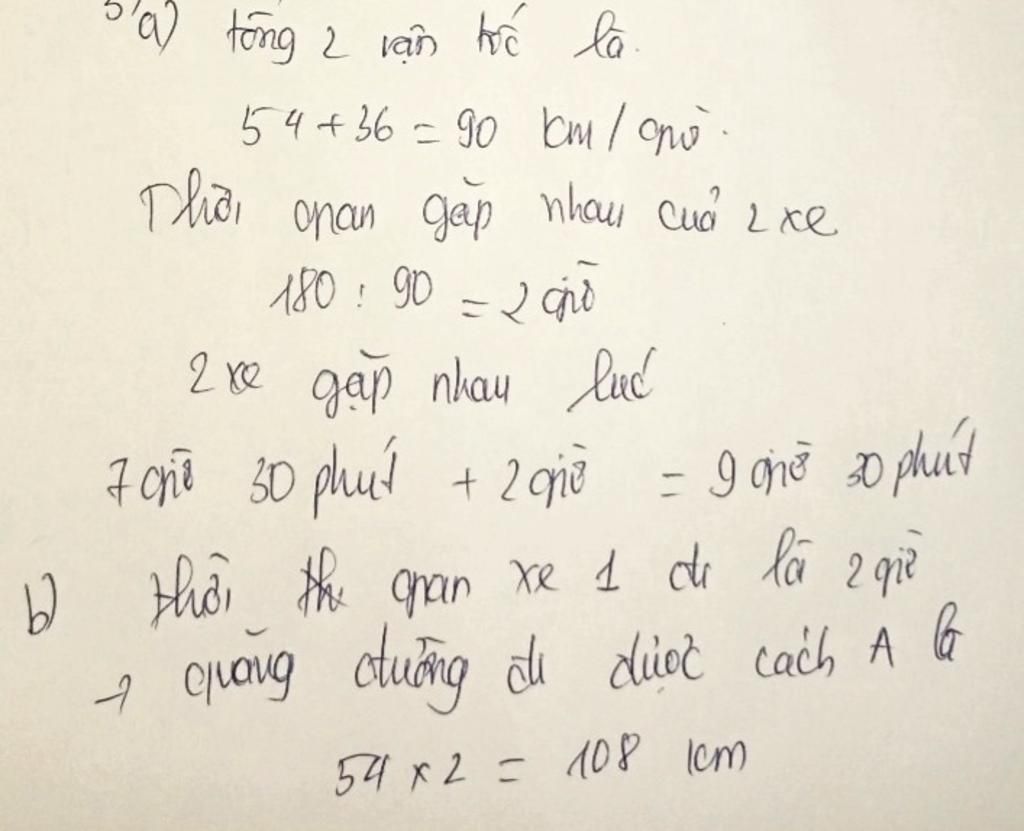 a) tổng 2 vận tốc là.
54 + 36 = 90 km/giờ.
Thời gian gặp nhau của 2 xe
180 : 90 = 2 giờ
2 xe gặp nhau lúc
7 giờ 30 phút + 2 giờ = 9 giờ 30 phút
b) thời gian xe 1 đi là 2 giờ
→ quãng đường đi được cách A là
54 x 2 = 108 km